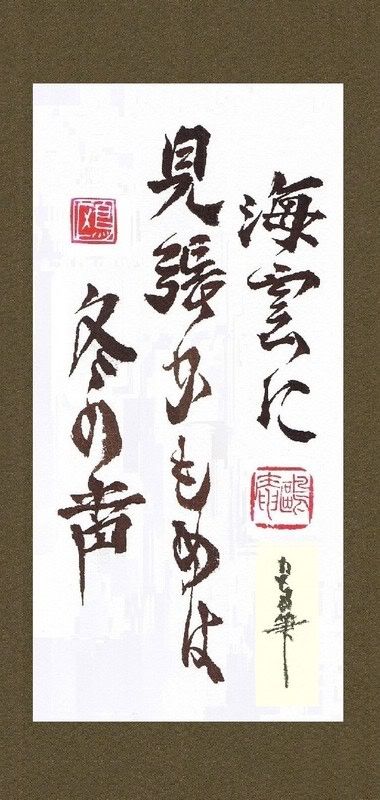 海雲に
見張かもめは
冬の声
鴎